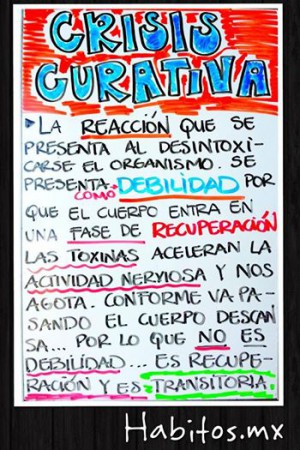 CRISIS
CURATIVA
LA REACCIÓN QUE SE
PRESENTA AL DESINTOXI-
CARSE EL ORGANISMO. SE
PRESENTA COMO DEBILIDAD POR
QUE EL CUERPO ENTRA EN
UNA FASE DE RECUPERACIÓN
LAS TOXINAS ACELERAN LA
ACTIVIDAD NERVIOSA Y NOS
AGOTA. CONFORME VA PA-
SANDO EL CUERPO DESCAN
SA... POR LO QUE NO ES
DEBILIDAD... ES RECUPE-
RACIÓN Y ES TRANSITORIA.
Habitos.mx